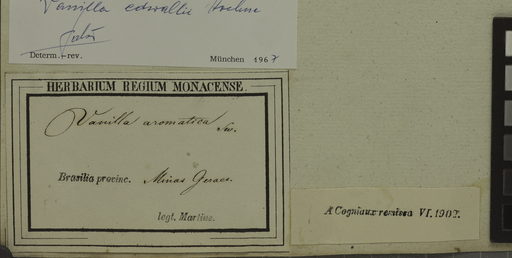 Vanilla edwallii Hoehne
Determ.–rev. München 1967
HERBARIUM REGIUM MONACENSE.
Vanilla aromatica Sw.
Brasilia provinc. Minas Geraes.
legt. Martius.
A Cogniaux remissa VI. 1902.